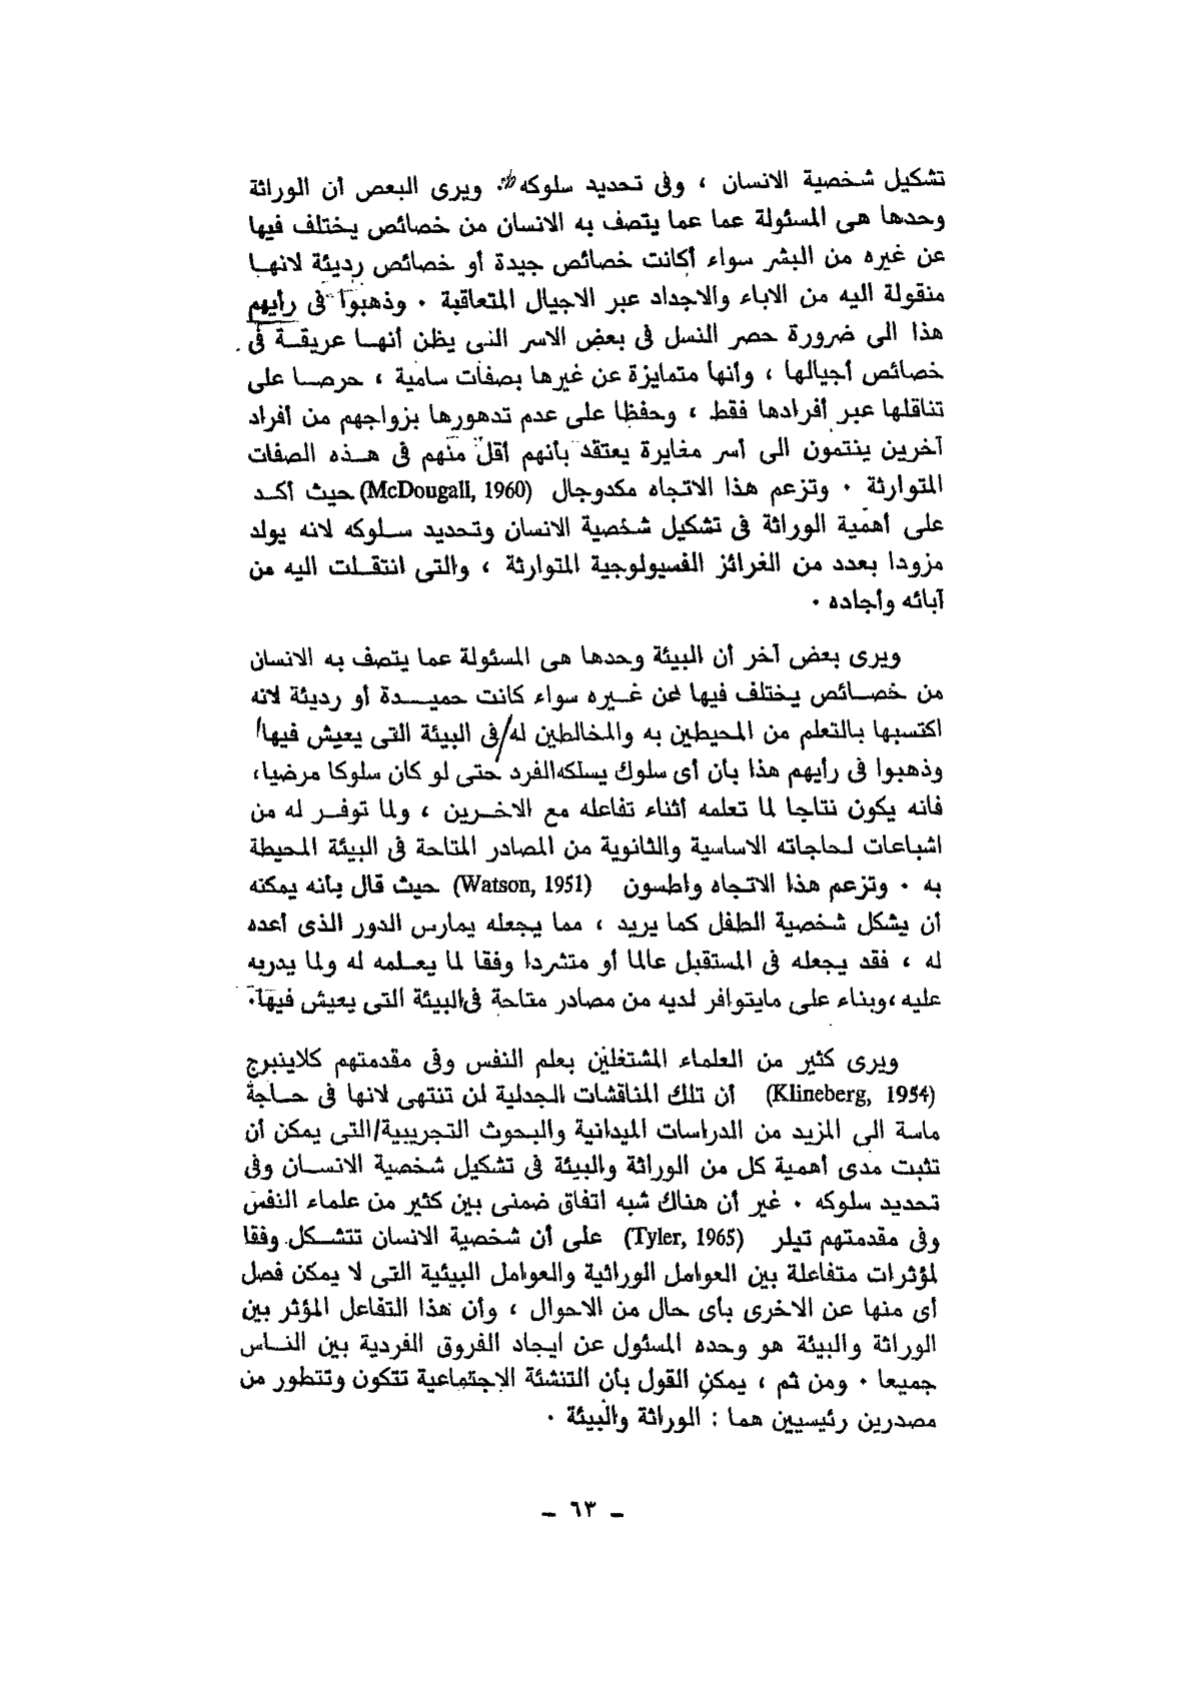 تشكيل شخصية الانسان ، وفى تحديد سلوكه . ويرى البعض أن الوراثة
وحدها هى المسئولة عما عما يتصف به الانسان من خصائص يختلف فيها
عن غيره من البشر سواء أكانت خصائص جيدة أو خصائص رديئة لانها
منقولة اليه من الاباء والاجداد عبر الاجيال المتعاقبة . وذهبوا فى رأيهم
هذا الى ضرورة حصر النسل فى بعض الاسر التى يظن أنها عريقة فى
خصائص أجيالها ، وأنها متمايزة عن غيرها بصفات سامية ، حرصا على
تناقلها عبر أفرادها فقط ، وحفظا على عدم تدهورها بزواجهم من أفراد
آخرين ينتمون الى أسر مغايرة يعتقد بأنهم أقل منهم فى هذه الصفات
المتوارثة . وتزعم هذا الاتجاه مكدوجال (McDougall, 1960) حيث أكد
على أهمية الوراثة فى تشكيل شخصية الانسان وتحديد سلوكه لانه يولد
مزودا بعدد من الغرائز الفسيولوجية المتوارثة ، والتى انتقلت اليه من
آبائه وأجاده .
ويرى بعض آخر أن البيئة وحدها هى المسئولة عما يتصف به الانسان
من خصائص يختلف فيها عن غيره سواء كانت حميدة أو رديئة لانه
اكتسبها بالتعلم من المحيطين به والمخالطين له/فى البيئة التى يعيش فيها/
وذهبوا فى رأيهم هذا بأن أى سلوك يسلكه الفرد حتى لو كان سلوكا مرضيا،
فانه يكون نتاجا لما تعلمه أثناء تفاعله مع الاخرين ، ولما توفر له من
اشباعات لحاجاته الاساسية والثانوية من المصادر المتاحة فى البيئة المحيطة
به . وتزعم هذا الاتجاه واطسون (Watson, 1951) حيث قال بأنه يمكنه
أن يشكل شخصية الطفل كما يريد ، مما يجعله يمارس الدور الذى أعده
له ، فقد يجعله فى المستقبل عالما أو متشردا وفقا لما يعلمه له ولما يدربه
عليه ،وبناء على مايتوافر لديه من مصادر متاحة فى البيئة التى يعيش فيها.
ويرى كثير من العلماء المشتغلين بعلم النفس وفى مقدمتهم كلاينبرج
(Klineberg, 1954) أن تلك المناقشات الجدلية لن تنتهى لانها فى حاجة
ماسة الى المزيد من الدراسات الميدانية والبحوث التجريبية/التى يمكن أن
تثبت مدى أهمية كل من الوراثة والبيئة فى تشكيل شخصية الانسان وفى
تحديد سلوكه . غير أن هناك شبه اتفاق ضمنى بين كثير من علماء النفس
وفى مقدمتهم تيلر (Tyler, 1965) على أن شخصية الانسان تتشكل وفقا
لمؤثرات متفاعلة بين العوامل الوراثية والعوامل البيئية التى لا يمكن فصل
أى منها عن الاخرى بأى حال من الاحوال ، وأن هذا التفاعل المؤثر بين
الوراثة والبيئة هو وحده المسئول عن ايجاد الفروق الفردية بين الناس
جميعا . ومن ثم ، يمكن القول بأن التنشئة الاجتماعية تتكون وتتطور من
مصدرين رئيسيين هما : الوراثة والبيئة .
– ٦٣ –